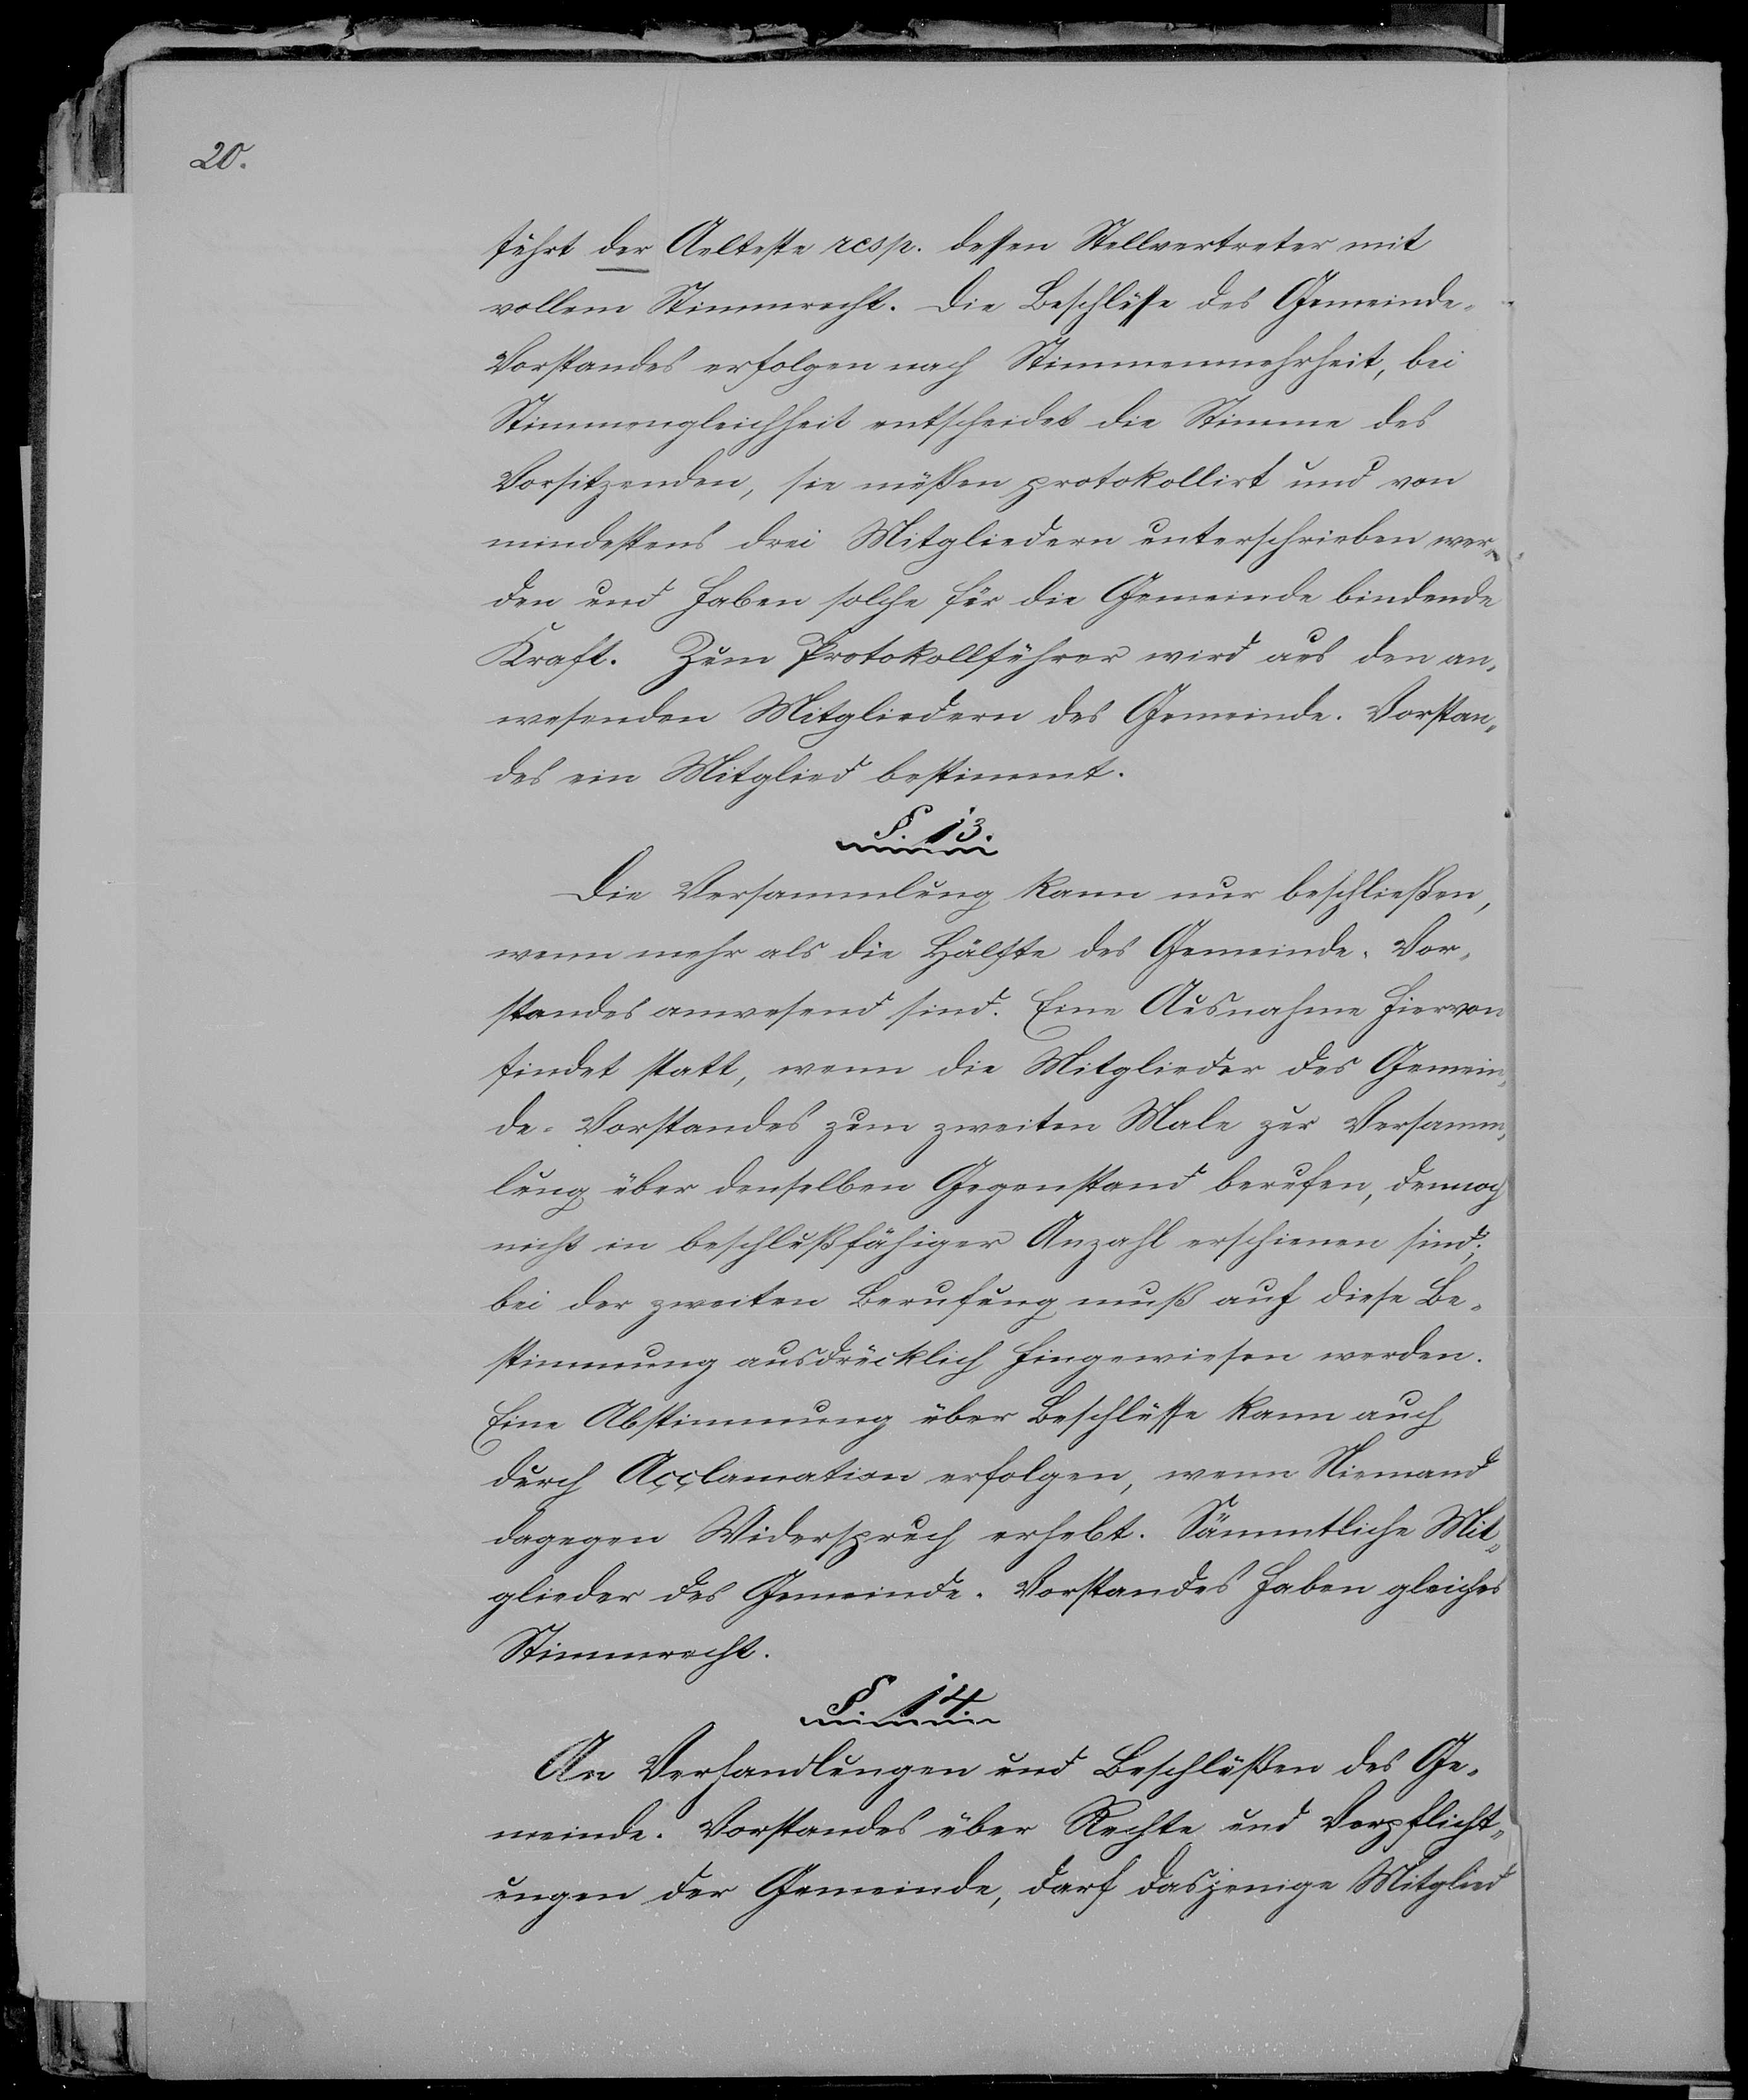 20.
führt der Aelteste resp. dessen Stellvertreter mit
vollem Stimmrecht. Die Beschlüsse des Gemeinde-
Vorstandes erfolgen nach Stimmenmehrheit, bei
Stimmengleichheit entscheidet die Stimme des
Vorsitzenden, sie müßen protokollirt und von
mindestens drei Mitgliedern unterschrieben wer-
den und haben solche für die Gemeinde bindende
Kraft. Zum Protokollführer wird aus den an-
wesenden Mitgliedern des Gemeinde-Vorstan-
des ein Mitglied bestimmt.
§. 13.
Die Versammlung kann nur beschließen,
wenn mehr als die Hälfte des Gemeinde-Vor-
standes anwesend sind. Eine Ausnahme hiervon
findet statt, wenn die Mitglieder des Gemein-
de-Vorstandes zum zweiten Male zur Versamm-
lung über denselben Gegenstand berufen, dennoch
nicht in beschlußfähiger Anzahl erschienen sind;
bei der zweiten Berufung muß auf diese Be-
stimmung ausdrücklich hingewiesen werden.
Eine Abstimmung über Beschlüsse kann auch
durch Acclamation erfolgen, wenn Niemand
dagegen Widerspruch erhebt. Sämmtliche Mit-
glieder des Gemeinde-Vorstandes haben gleiches
Stimmrecht.
§. 14.
An Verhandlungen und Beschlüßen des Ge-
meinde-Vorstandes über Rechte und Verpflicht-
ungen der Gemeinde, darf dasjenige Mitglied